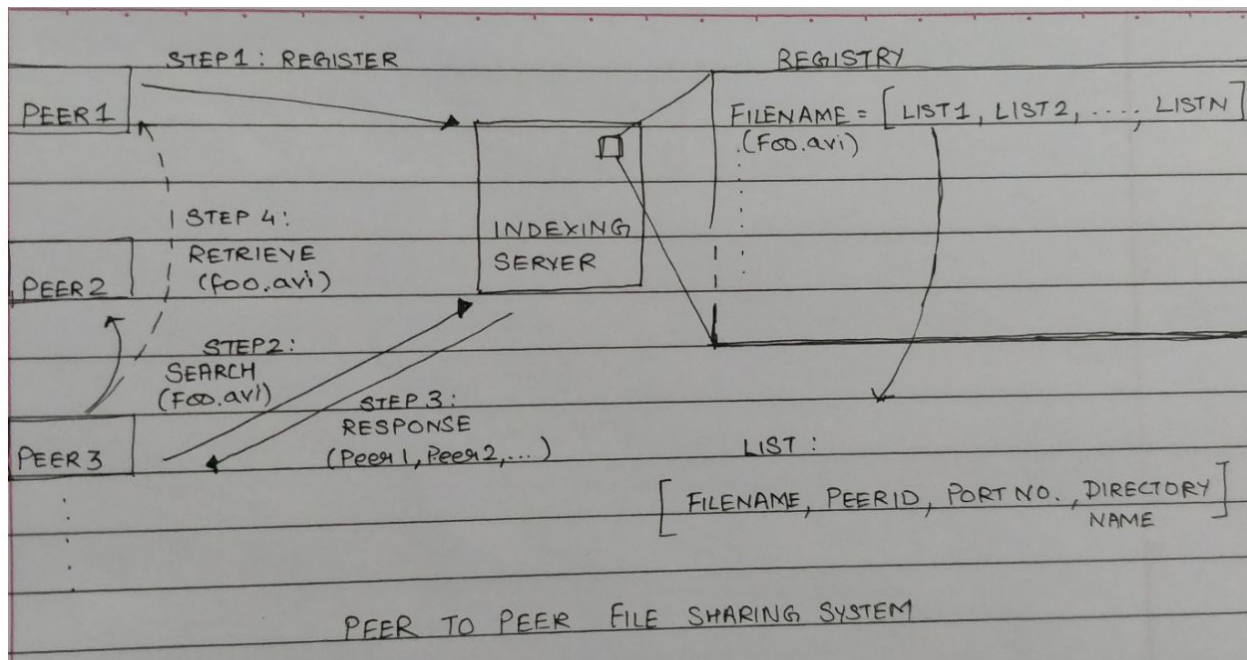 STEP1: REGISTER
REGISTRY
PEER1
FILENAME = [LIST1, LIST2, ...., LISTN]
(Foo.avi)
STEP 4:
RETRIEVE
(foo.avi)
INDEXING
SERVER
PEER2
STEP2:
SEARCH
(Foo.avi)
STEP 3:
RESPONSE
(Peer1, Peer2,...)
PEER3
LIST:
[FILENAME, PEERID, PORT NO., DIRECTORY
NAME]
PEER TO PEER FILE SHARING SYSTEM